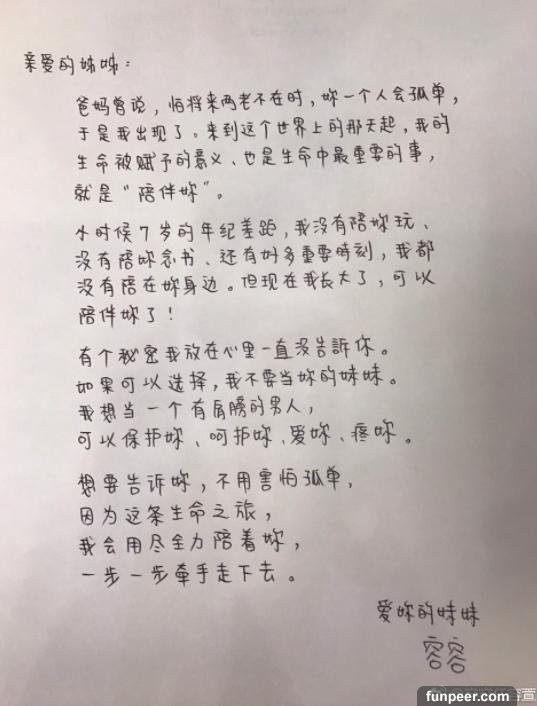 亲爱的姊姊：
爸妈曾说，怕将来两老不在时，妳一个人会孤单，
于是我出现了。来到这个世界上的那天起，我的
生命被赋予的意义、也是生命中最重要的事，
就是“陪伴妳”。
小时候7岁的年纪差距，我没有陪妳玩、
没有陪妳念书、还有好多重要時刻，我都
没有陪在妳身边。但现在我长大了，可以
陪伴妳了！
有个秘密我放在心里一直没告訴你。
如果可以选择，我不要当妳的妹妹。
我想当一个有肩膀的男人，
可以保护妳、呵护妳、爱妳、疼妳。
想要告诉妳，不用害怕孤单，
因为这条生命之旅，
我会用尽全力陪着妳，
一步一步牵手走下去。
爱妳的妹妹
容容
funpeer.com